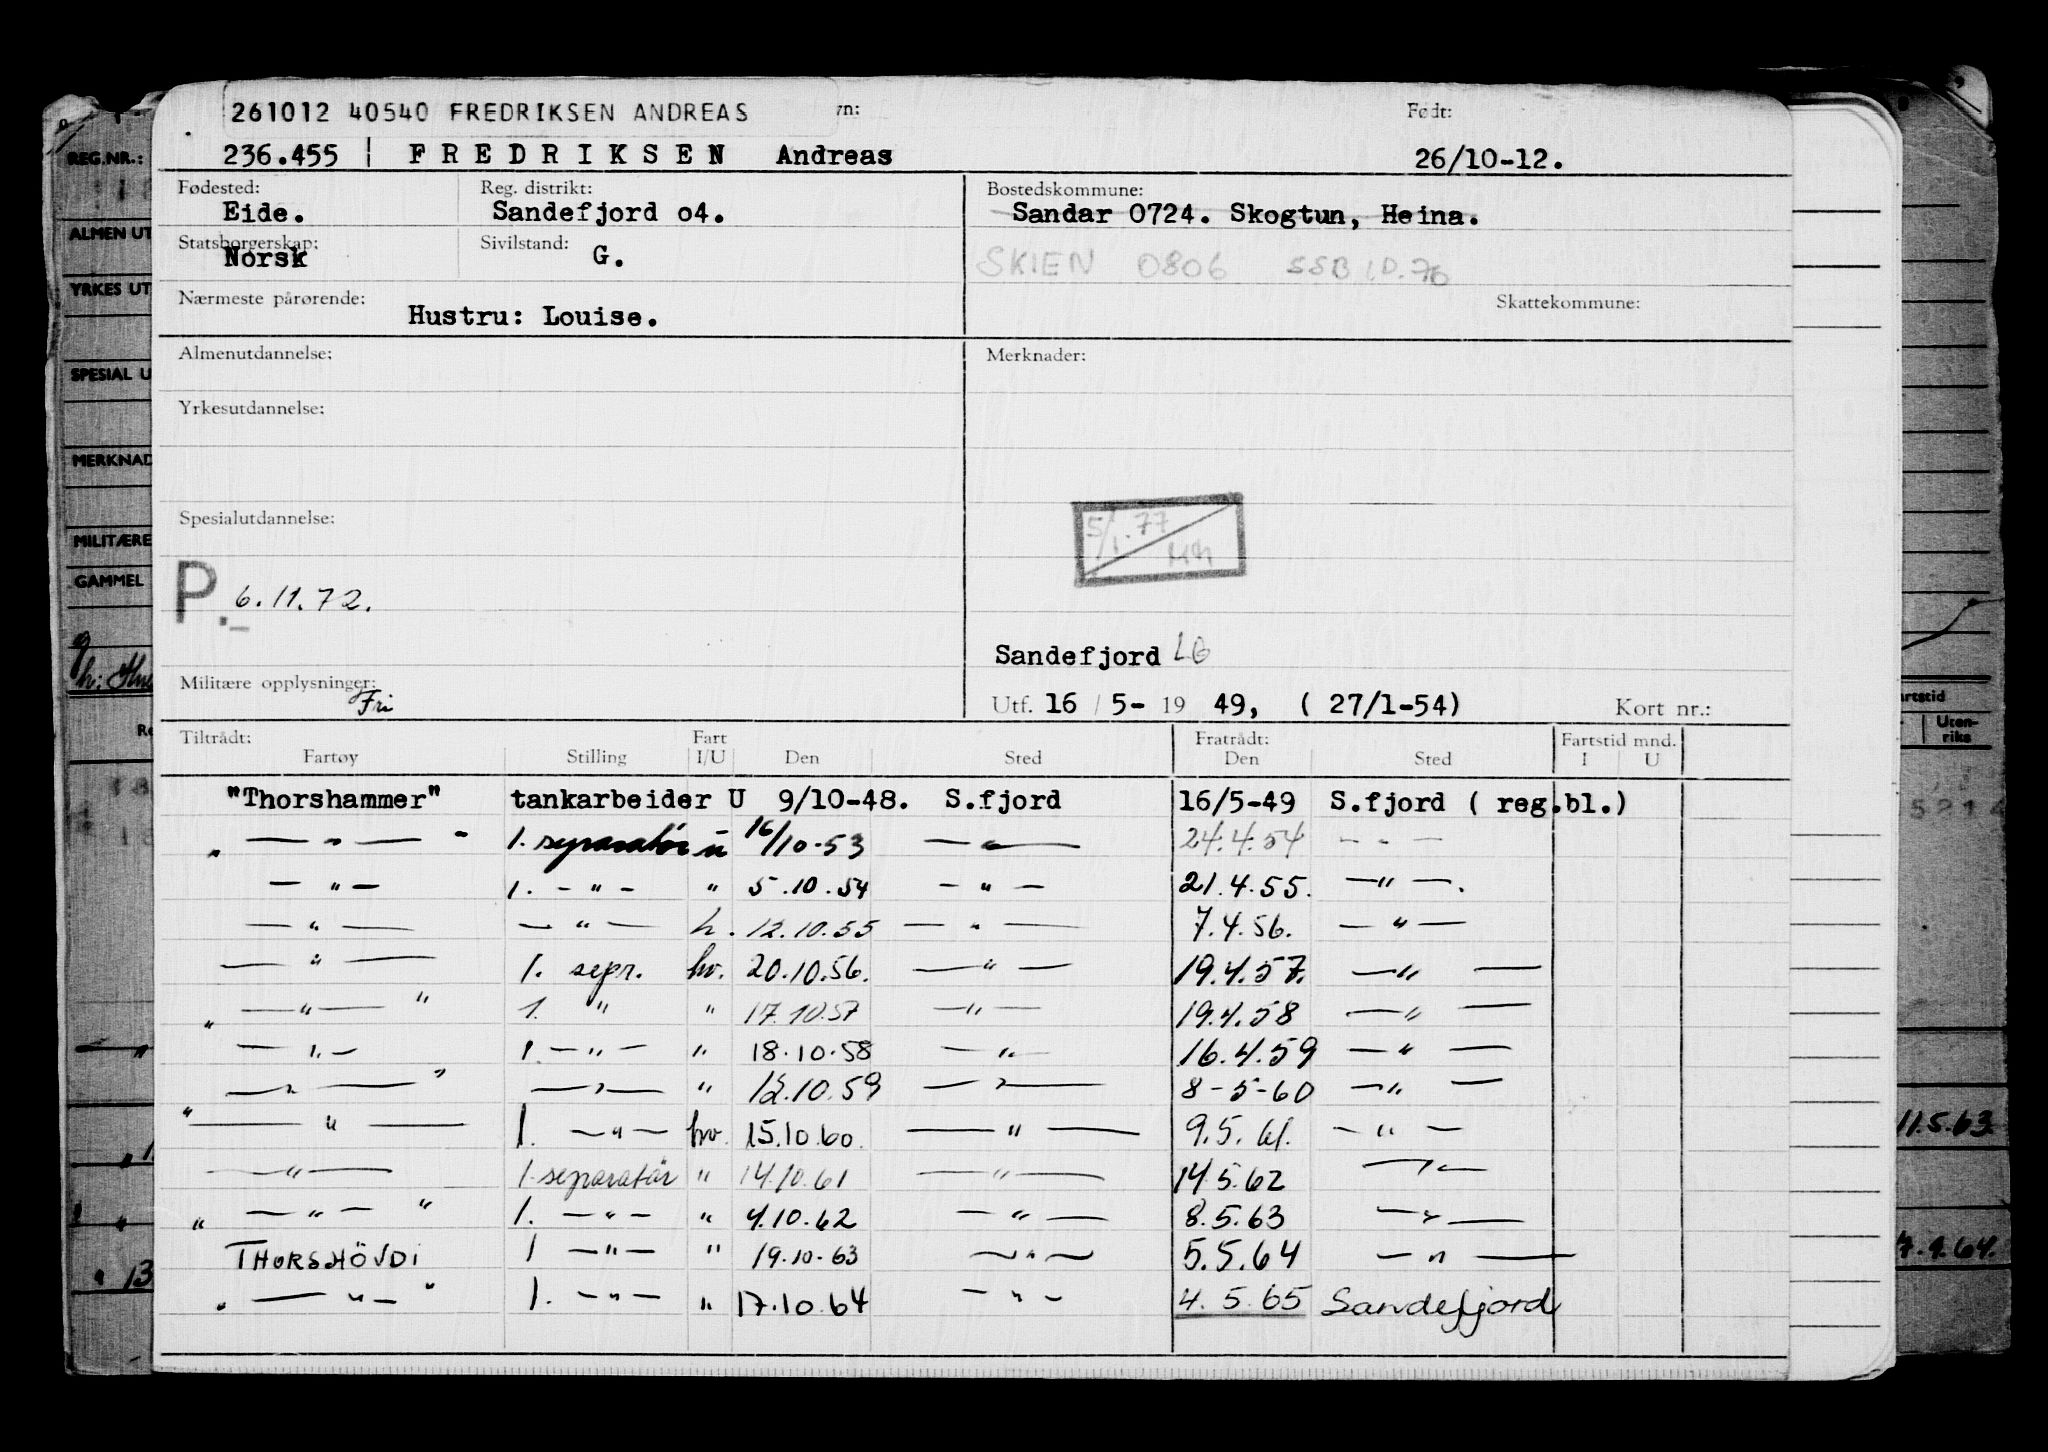 261012 40540 FREDRIKSEN ANDREAS vn: Født:
236.455 | FREDRIKSEN Andreas 26/10-12.
Fødested: Reg. distrikt: Bostedskommune:
Eide. Sandefjord o4. Sandar 0724. Skogtun, Heina.
Statsborgerskap: Sivilstand:
Norsk G. SKIEN 0806 SSB I.D.76
Nærmeste pårørende: Skattekommune:
Hustru: Louise.
Almenutdannelse: Merknader:
Yrkesutdannelse:
Spesialutdannelse: 5/1.77
P. 6.11.72.
Sandefjord LB
Militære opplysninger: Fri
Utf. 16 / 5- 19 49, ( 27/1-54) Kort nr.:
Tiltrådt: Fart Fratrådt: Fartstid mnd.
Fartøy Stilling I/U Den Sted Den Sted I U
"Thorshammer" tankarbeider U 9/10-48. S.fjord 16/5-49 S.fjord ( reg.bl.)
" — " — " 1. separatør u 16/10-53 — " — 24.4.54 - " -
— " — 1. - " - " 5.10.54 - " - 21.4.55. — " —.
— " — — " — h. 12.10.55 — " — 7.4.56. — " —
— " — 1. sepr. hv. 20.10.56. — " — 19.4.57. — " —
" — " — " 1. " " 17.10.57 — " — 19.4.58 — " —
— " — 1. — " — " 18.10.58 — " — 16.4.59 — " —
— " — " — " — " 12.10.59 — " — 8-5-60 — " —
" — " — 1. — " — hv. 15.10.60. — " — 9.5.61. — " —
— " — 1. separatør " 14.10.61 — " — 14.5.62 — " —
" — " — " 1. — " — " 4.10.62 — " — 8.5.63 — " —
THORSHÖVDI 1 — " — " 19.10.63 — " — 5.5.64 — " —
" — " — " 1. — " — " 17.10.64 — " — 4.5.65 Sandefjord
REG.NR.:
ALMEN UT
YRKES UT
SPESIAL U
MERKNAD
MILITÆRE
GAMMEL
artstid
Uten-
riks
11.5.63